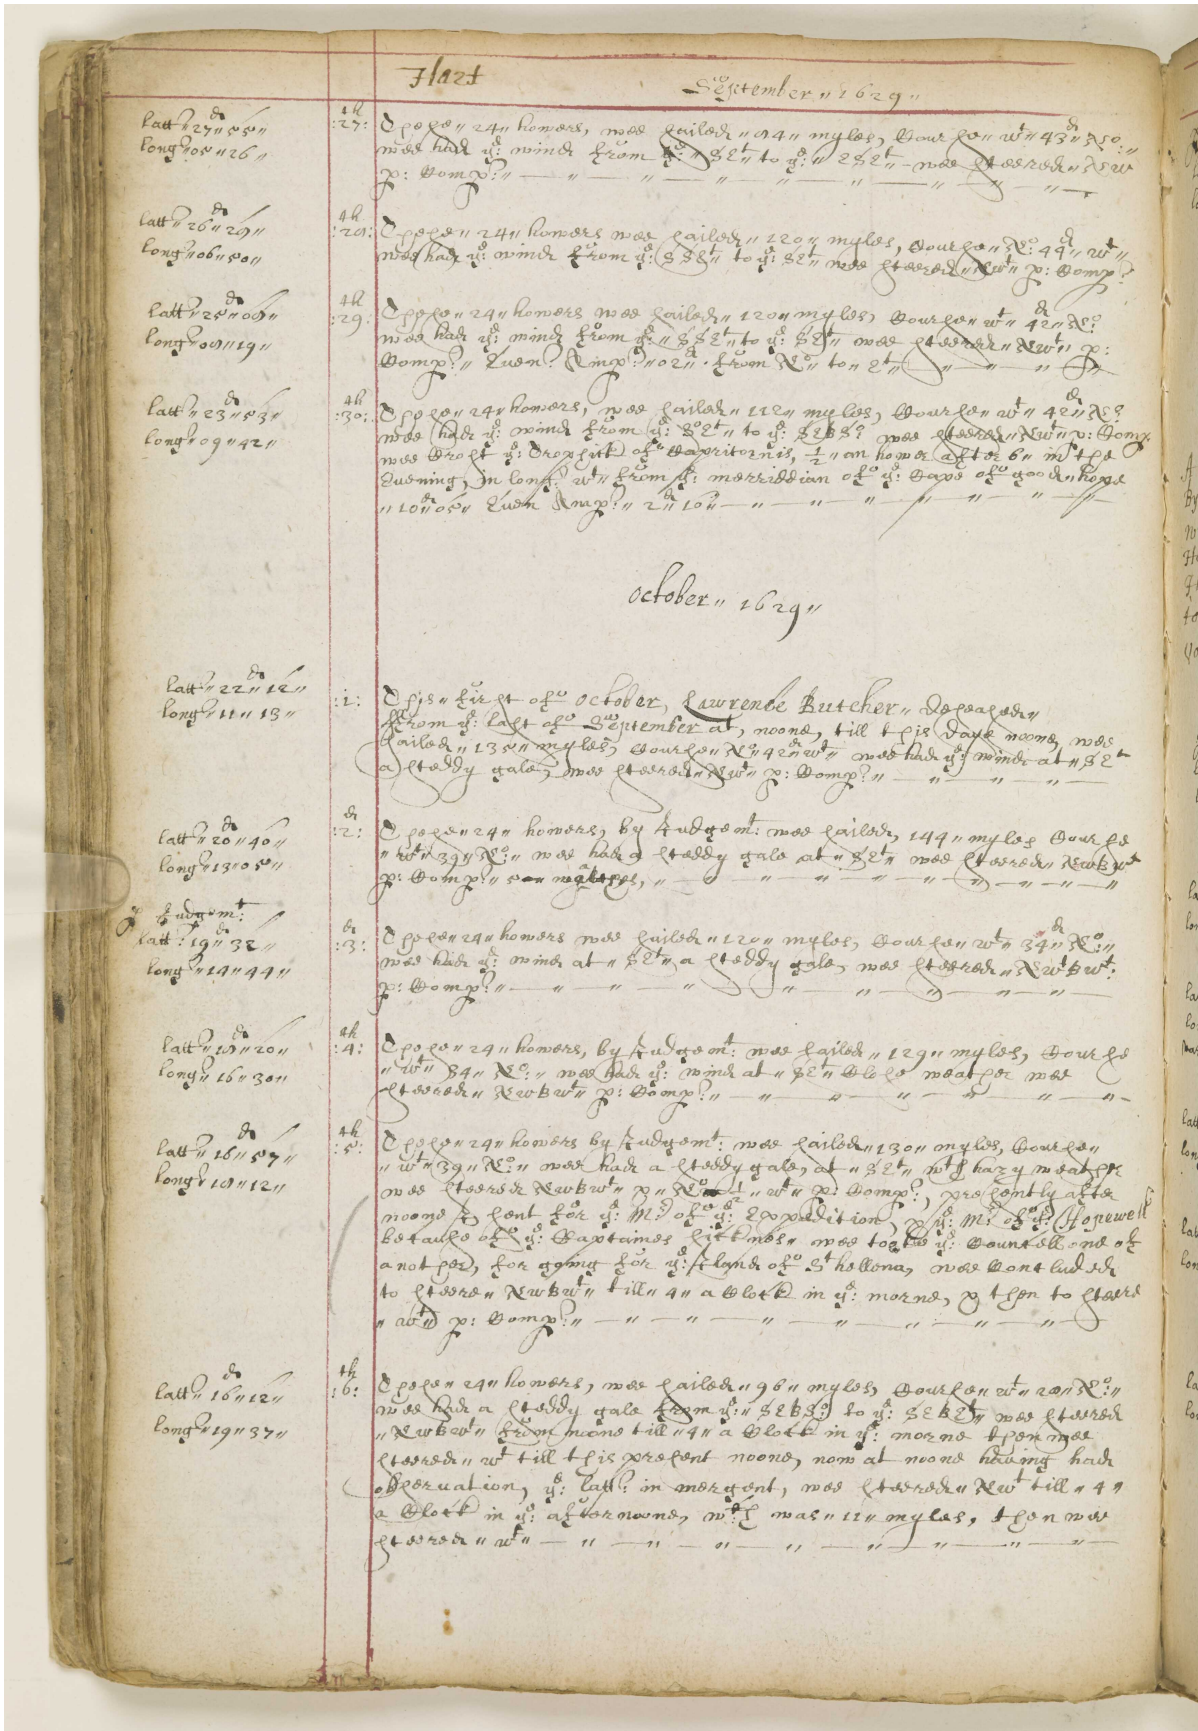 Hart
September " 1629 "
latt: " 27 " 55 "
long: " 05 " 26 "
:27:th
These " 24 " howers, wee sailed " 84 " myles, Course " wt " 43d " No: "
wee had ye: wind from ye: " SEt " to ye: " ESEt " wee steered " NW
p: Comp: "
latt: " 26 " 29 "
long: " 06 " 50 "
:28:th
These " 24 " howers wee sailed " 120 " myles, Course " No: 44d " wt "
wee had ye: wind from ye: SSEt " to ye: SEt " wee steered " NWt " p: Comp:
latt: " 25 " 08 "
long: " 08 " 19 "
:29:th
These " 24 " howers wee sailed " 120 " myles, Course " wt " 42d " No:
wee had ye: wind from ye: " SSEt " to ye: SEt " wee steered " NWt " p:
Comp: " Euen: Amp: " 02d " from No " to " Et "
latt: " 23 " 53 "
long: " 09 " 42 "
:30:th
These " 24 " howers, wee sailed " 112 " myles, Course " wt " 42d " No:
wee had ye: wind from ye: SoEt " to ye: SEBSo: wee steered " NWt " p: Comp
wee Crost ye: Trophick of Capricornis, 1/2 " an hower after 6 " in the
Euening, in long: wt " from ye: merriddian of ye: Cape of good " hope
" 10d " 05 " Euen Amp: " 2d " 10 "
October " 1629 "
latt: " 22 " 12 "
long: " 11 " 13 "
:1:
This " first of October, Lawrence Butcher " Deseased "
from ye: last of September at, noone, till this daye noone, wee
sailed " 135 " myles, Course " No " 42d " wt " wee had ye: wind at " SEt
a steddy gale, wee steered " NWt " p: Comp: "
latt: " 20 " 40 "
long: " 13 " 05 "
:2:d
These " 24 " howers, by Judgemt: wee sailed, 144 " myles Course
" wt " 39 " No: " wee had a steddy gale at " SEt " wee steered " NWBWt
p: Comp: "
p Judgemt:
latt: " 19 " 32 "
long: " 14 " 44 "
:3:d
These " 24 " howers wee sailed " 120 " myles, Course " wt " 34d " No: "
wee had ye: wind at " SEt " a steddy gale, wee steered " NWtBWt:
p: Comp: "
latt: " 18 " 20 "
long: " 16 " 30 "
:4:th
These " 24 " howers, by Judgemt: wee sailed " 129 " myles, Course
" wt " 34 " No: " wee had ye: wind at " SEt " Close weather wee
steered " NWBWt " p: Comp: "
latt: " 16 " 57 "
long: " 18 " 12 "
:5:th
These " 24 " howers by Judgemt: wee sailed " 130 " myles, Course "
" wt " 39 " No: " wee had a steddy gale, at " SEt " wth hazy weather
wee steered NWBWt " p " No 1/2 " wt " p: Comp:, presently after
noone I sent for ye: Mr: of ye: Exspedition, & ye: Mr: of ye: Hopewell
because of ye: Captaines sicknes " wee tooke ye: Councell one of
another, for going for ye: Iland of St hellena, wee Concluded
to steere " NWBWt " till " 4 " a Clock in ye: morne, & then to steere
" Wt " p: Comp: "
latt: " 16 " 12 "
long: " 19 " 37 "
:6:th
These " 24 " howers, wee sailed " 96 " myles, Course " wt " 28 " No: "
wee had a steddy gale from ye: " SEBSo: to ye: SEBEt " wee steered
" NWBWt " from noone till " 4 " a Clock in ye: morne then wee
steered " wt till this present noone, now at noone having had
observation, ye: latt: in mergent, wee steered " NWt till " 4 "
a Clock in ye: afternoone, wch was " 11 " myles, then wee
steered " wt "